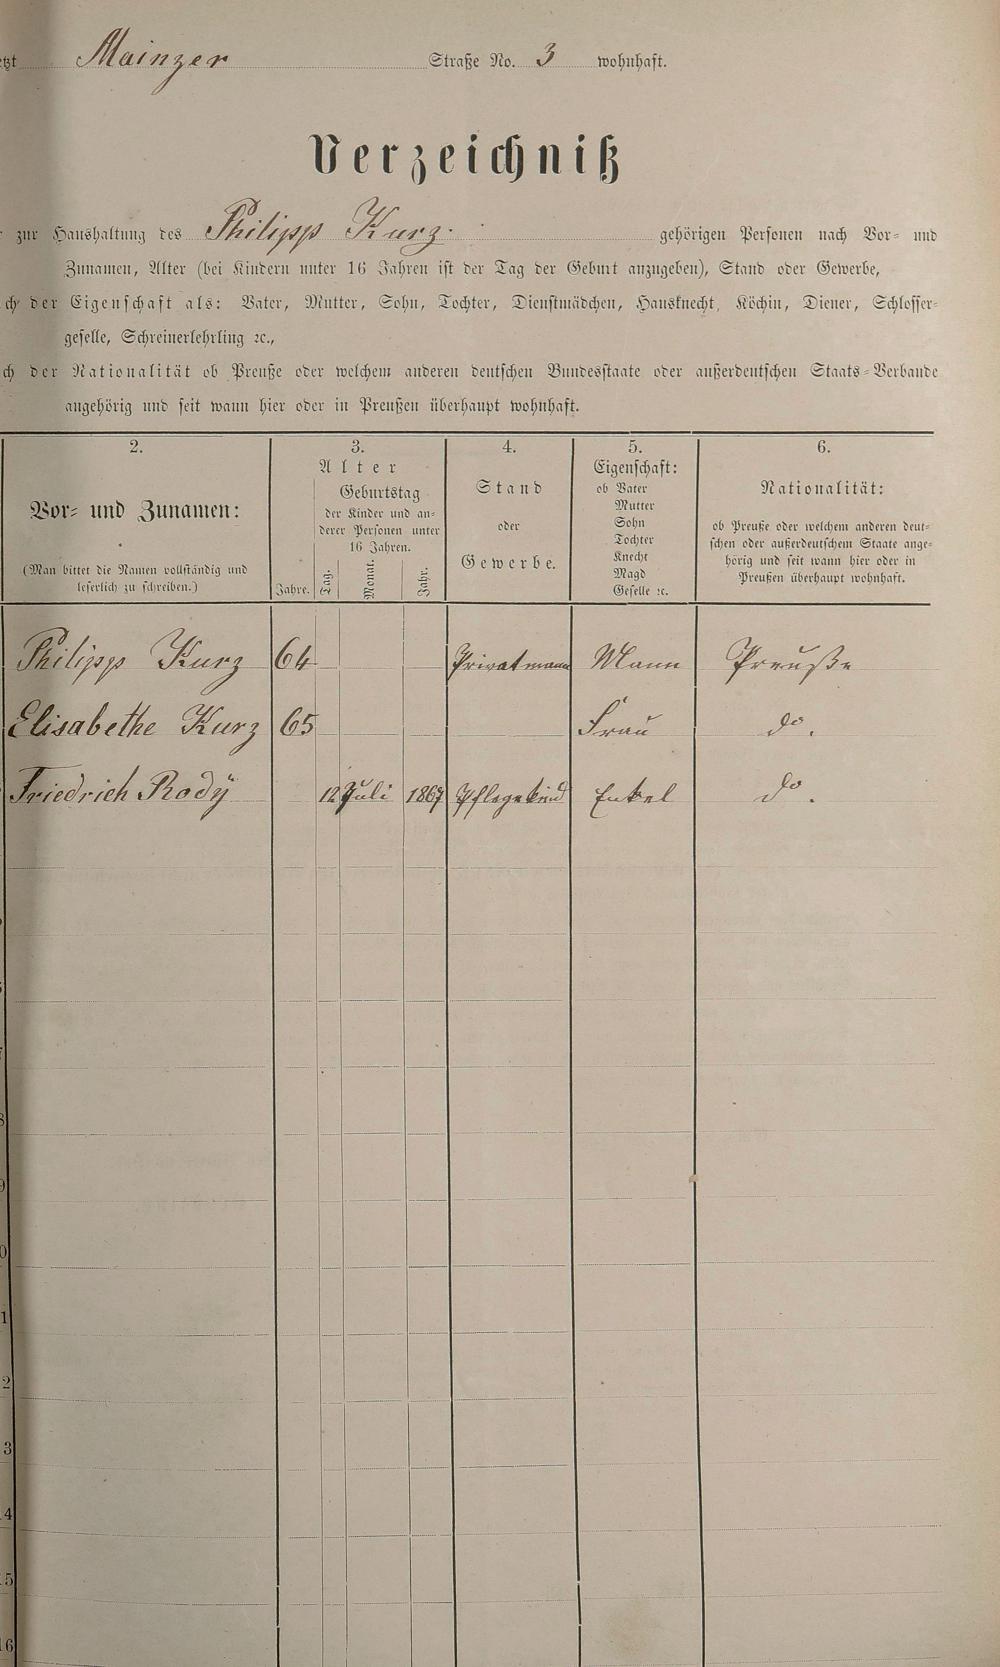 etzt Mainzer Straße No. 3 wohnhaft.
Verzeichniß
zur Haushaltung des Philipp Kurz. gehörigen Personen nach Vor- und
Zunamen, Alter (bei Kindern unter 16 Jahren ist der Tag der Geburt anzugeben), Stand oder Gewerbe,
ch der Eigenschaft als: Vater, Mutter, Sohn, Tochter, Dienstmädchen, Hausknecht, Köchin, Diener, Schlosser-
geselle, Schreinerlehrling ꝛc.,
ch der Nationalität ob Preuße oder welchem anderen deutschen Bundesstaate oder außerdeutschen Staats-Verbande
angehörig und seit wann hier oder in Preußen überhaupt wohnhaft.
2.
Vor- und Zunamen:
(Man bittet die Namen vollständig und
leserlich zu schreiben.)
3.
Alter
Jahre.
Geburtstag
der Kinder und an-
derer Personen unter
16 Jahren.
Tag.
Monat.
Jahr.
4.
Stand
oder
Gewerbe.
5.
Eigenschaft:
ob Vater
Mutter
Sohn
Tochter
Knecht
Magd
Geselle ꝛc.
6.
Nationalität:
ob Preuße oder welchem anderen deut-
schen oder außerdeutschem Staate ange-
hörig und seit wann hier oder in
Preußen überhaupt wohnhaft.
Philipp Kurz 64 Privatmann Mann Preuße
Elisabethe Kurz 65 Frau do.
Friedrich Rody 12 Juli 1867 Pflegekind Enkel do.
7
8
9
0
1
2
3
4
5
16